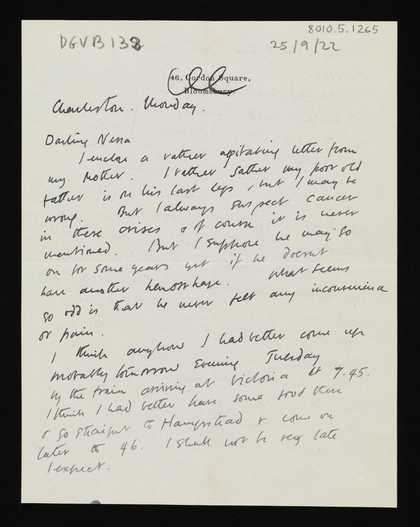 DGVB 138
8010.5.1265
25/9/22
46, Gordon Square,
Bloomsbury.
Charleston. Monday.
Darling Nessa
I enclose a rather agitating letter from
my Mother. I rather gather my poor old
Father is on his last legs, but I may be
wrong. But I always suspect cancer
in these crises & of course it is never
mentioned. But I suppose he may go
on for some years yet if he doesnt
have another hemorrhage. What seems
so odd is that he never felt any inconvenience
or pain.
I think anyhow I had better come up
probably tomorrow Evening Tuesday
by the train arriving at Victoria at 7.45.
I think I had better have some food there
& go straight to Hampstead & come on
later to 46. I shall not be very late
I expect.